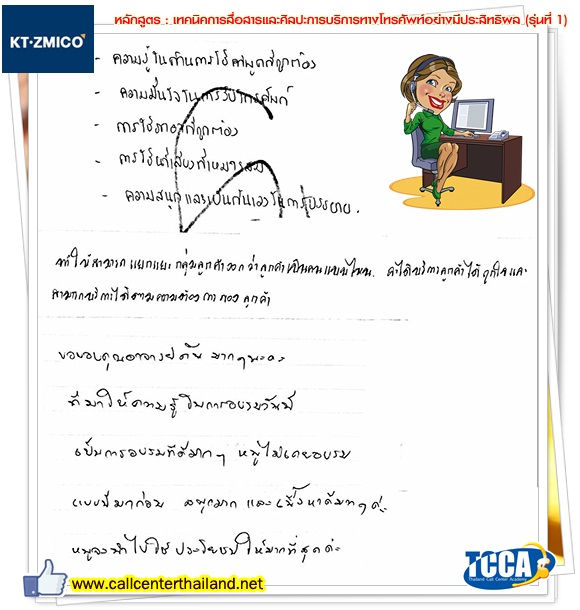 หลักสูตร : เทคนิคการสื่อสารและศิลปะการบริการทางโทรศัพท์อย่างมีประสิทธิผล (รุ่นที่ 1)
KT·ZMICO
- ความรู้ในด้านการใช้คำพูดที่ถูกต้อง
- ความมั่นใจในการรับโทรศัพท์
- การใช้ภาษาที่ถูกต้อง
- การใช้น้ำเสียงที่เหมาะสม
- ความสนุก และเป็นกันเองในการบรรยาย.
ทำให้สามารถแยกแยะกลุ่มลูกค้าออกว่าลูกค้าเป็นคนแบบไหน. จะได้บริการลูกค้าได้ถูกใจและ
สามารถบริการได้ตามความต้องการของลูกค้า
ขอขอบคุณอาจารย์ มากๆนะคะ
ที่มาให้ความรู้ในการอบรมวันนี้
เป็นการอบรมที่ดีมากๆ หนูไม่เคยอบรม
แบบนี้มาก่อน สนุกมาก และเนื้อหาดีมากๆค่ะ
หนูจะนำไปใช้ประโยชน์ให้มากที่สุดค่ะ
www.callcenterthailand.net
TCCA
Thailand Call Center Academy